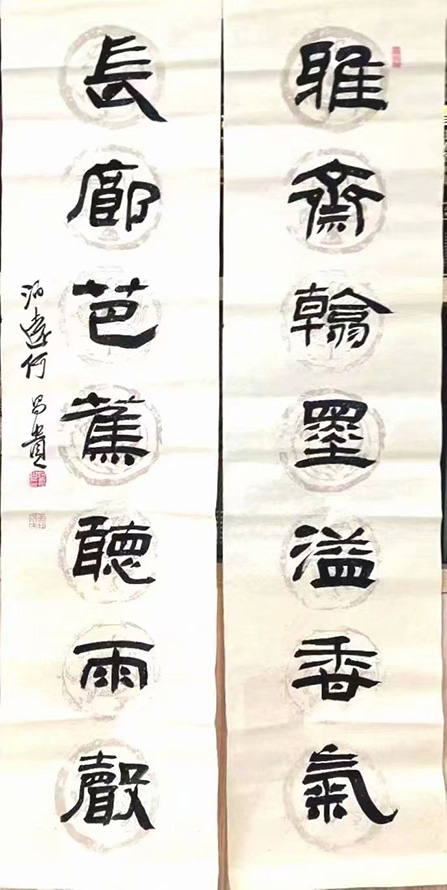 雅齋翰墨溢香氣
長廊芭蕉聽雨聲
泊遠何昌貴